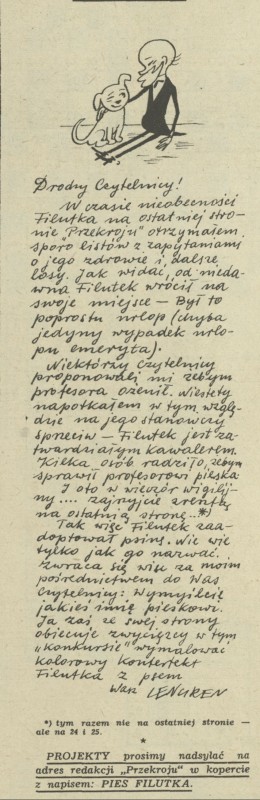 Drodzy Czytelnicy!
W czasie nieobecności
Filutka na ostatniej stro-
nie "Przekroju" otrzymałem
sporo listów z zapytaniami
o jego zdrowie i dalsze
losy. Jak widać, od nieda-
wna Filutek wrócił na
swoje miejsce – Był to
poprostu urlop (chyba
jedyny wypadek urlo-
pu emeryta).
Niektórzy czytelnicy
proponowali mi żebym
profesora ożenił. Niestety
napotkałem w tym wzglę-
dzie na jego stanowczy
sprzeciw – Filutek jest za-
twardziałym kawalerem.
Kilka osób radziło, żebym
sprawił profesorowi pieska
I oto w wieczór wigilij-
ny... zajrzyjcie zresztą
na ostatnią stronę...*)
Tak więc Filutek zaa-
doptował psinę. Nie wie
tylko jak go nazwać.
Zwraca się więc za moim
pośrednictwem do Was
Czytelnicy: Wymyślcie
jakieś imię pieskowi.
Ja zaś ze swej strony
obiecuję zwycięzcy w tym
"konkursie" wymalować
kolorowy konterfekt
Filutka z psem
Wasz LENGREN
*) tym razem nie na ostatniej stronie —
ale na 24 i 25.
*
PROJEKTY prosimy nadsyłać na
adres redakcji „Przekroju" w kopercie
z napisem: PIES FILUTKA.